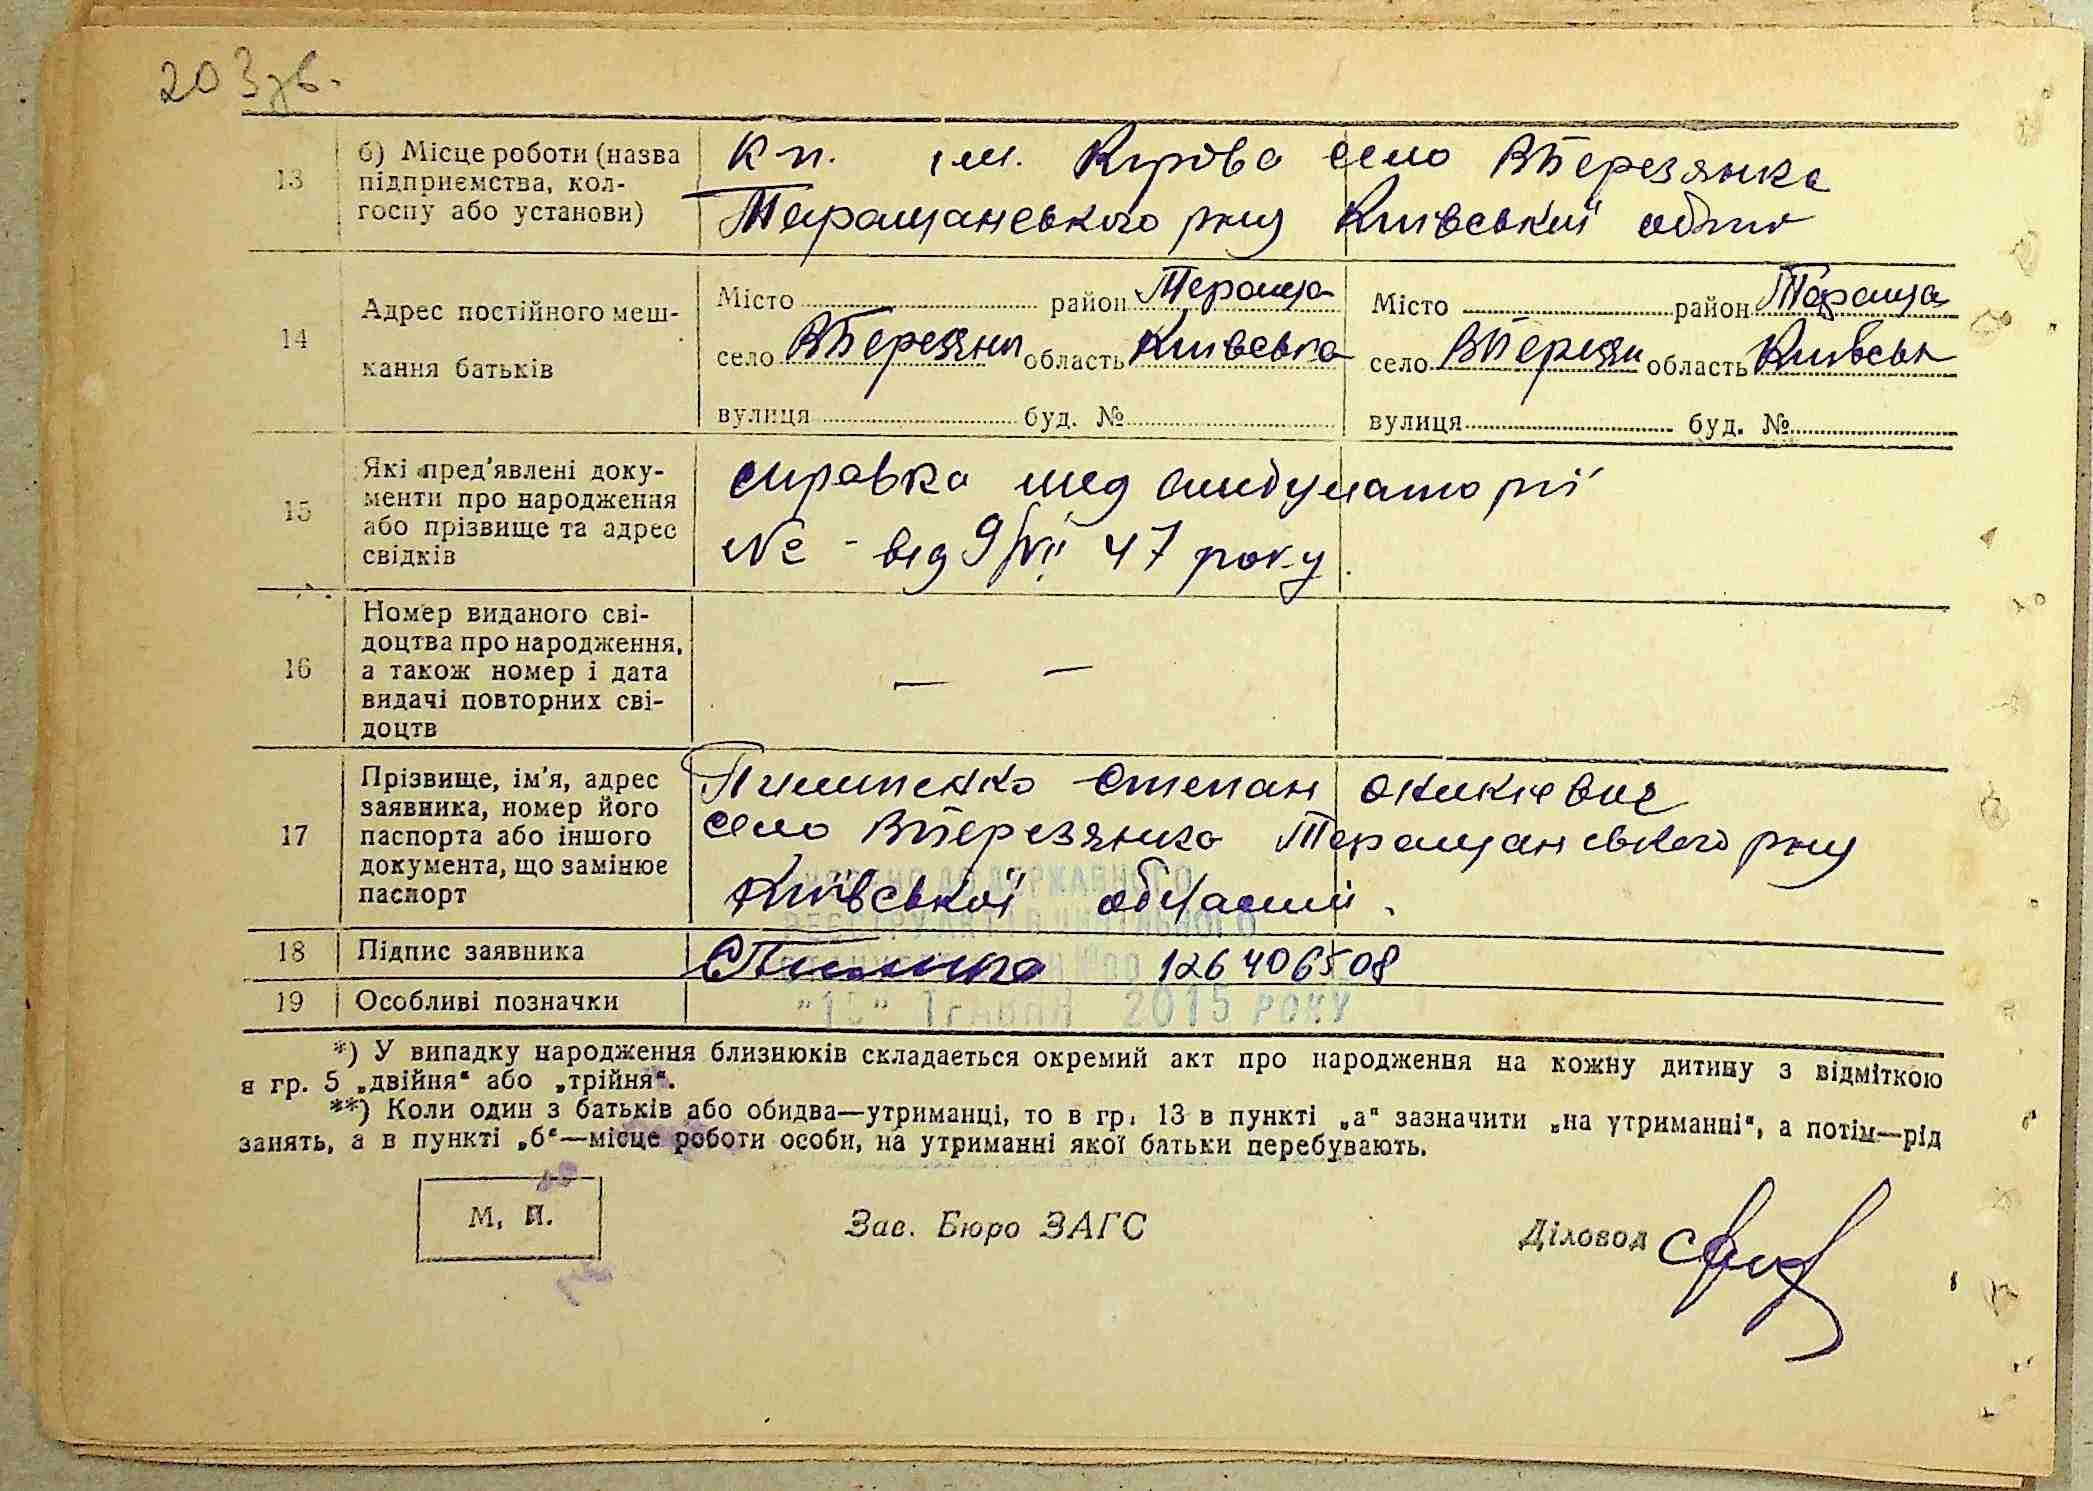 203зв.
13
б) Місце роботи (назва підприємства, колгоспу або установи)
к-п. ім. Кірова село ВБерезянка
Таращанського р-ну Київської обл
14
Адрес постійного мешкання батьків
Місто район Тараща
село ВБерезян область Київська
вулиця буд. №
Місто район Тараща
село ВБерезян область Київськ
вулиця буд. №
15
Які пред'явлені доку-
менти про народження
або прізвище та адрес
свідків
справка мед амбулаторії
№ - від 9/VII 47 року
16
Номер виданого сві-
доцтва про народження,
а також номер і дата
видачі повторних сві-
доцтв
— —
17
Прізвище, ім'я, адрес
заявника, номер його
паспорта або іншого
документа, що замінює
паспорт
Пилипенко Степан
село ВБерезянка Таращанського р-ну
Київської області.
ДО ДЕРЖАВНОГО
РЕЄСТРУ АКТІВ ЦИВІЛЬНОГО
18
Підпис заявника
126406508
19
Особливі позначки
"15" ТРАВНЯ 2015 РОКУ
*) У випадку народження близнюків складається окремий акт про народження на кожну дитину з відміткою
в гр. 5 „двійня“ або „трійня“.
**) Коли один з батьків або обидва—утриманці, то в гр. 13 в пункті „а“ зазначити „на утриманні“, а потім—рід
занять, а в пункті „б“—місце роботи особи, на утриманні якої батьки перебувають.
М. П.
Зав. Бюро ЗАГС
Діловод